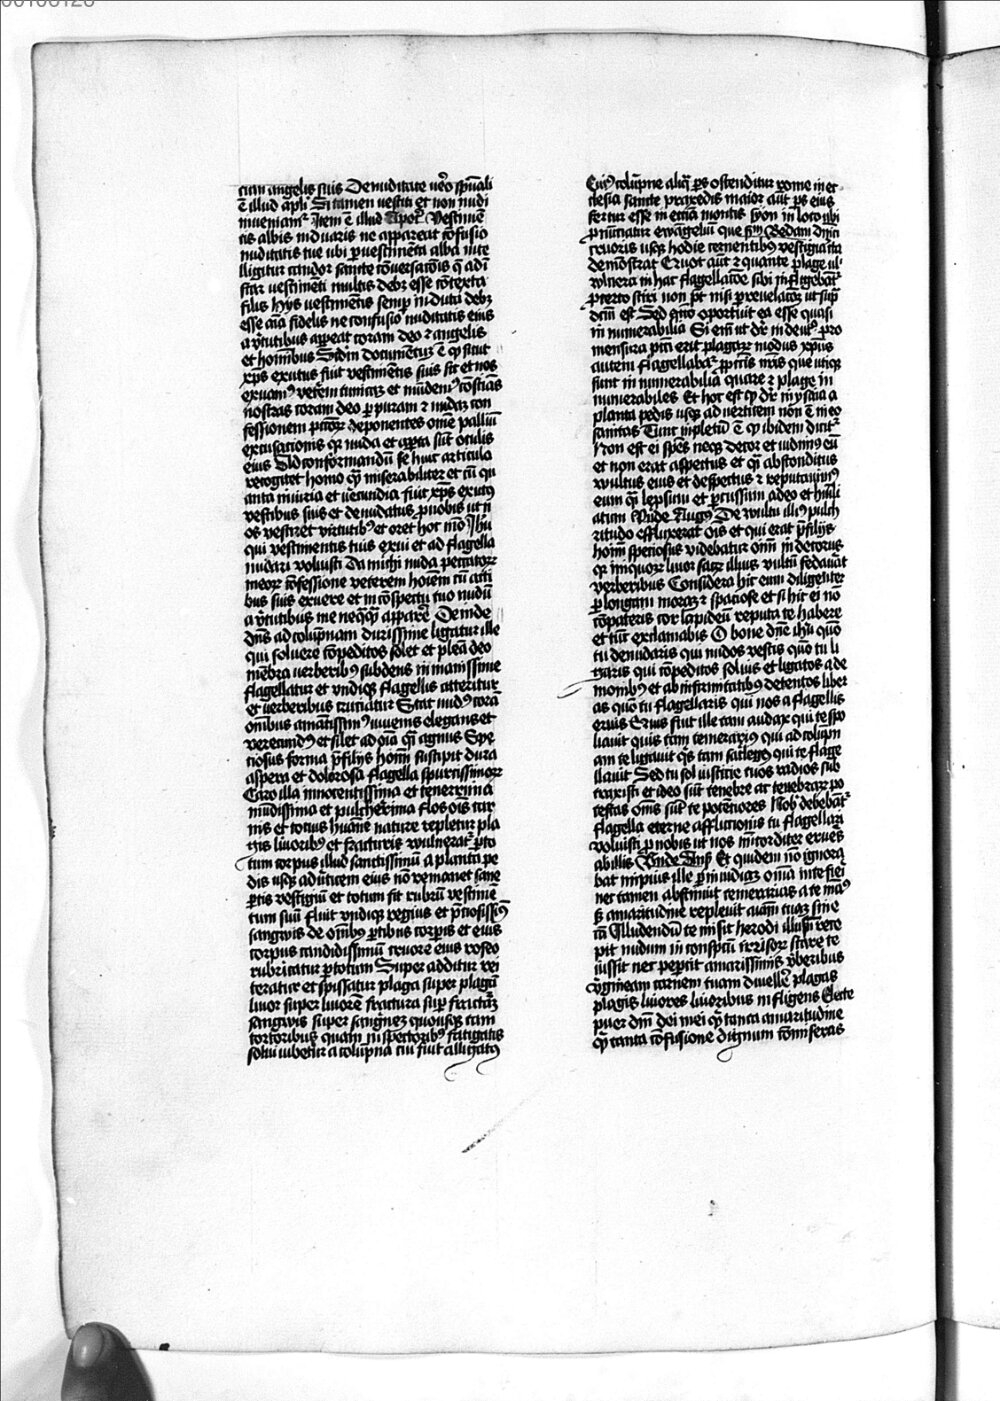 cum angelis suis De nuditate ūo spūali
ē illud apli Si tamen vestiti et non nudi
inueniam² Item ē illud Apoc̄ Vestimē
tis albis induaris ne appareat cōfusio
nuditatis tue ubi p vestimēta alba inte
lligitur candor sancte cōuersatōis q̄ adī
star vestimēti multis debz esse cōtexta
filiis hijs vestimētis semp indui debz
esse aīa fidelis ne confusio nuditatis eius
a v̄tutibus appeat coram deo ⁊ angelis
et hoīnibus Scdm documētuz ē ꝙ sicut
xp̄s exutus fuit vestimētis suis sic et nos
exuam⁹ veterem tunicaz et mūdem⁹ cōscīas
nostras coram deo p puram ⁊ nudaz con
fessionem pctōr deponentes omē palliū
excusacionis qr nuda et apta sūt oculis
eius Ad conformandū se huic articulo
recogitet homo qm̄ miserabiliter et cū qu
anta iniuria et verecundia fuit xp̄s exutꝰ
vestibus suis et denudatus p nobis ut n
os vestiret virtutibꝰ et oret hoc mō Ihū
qui vestimentis tuis exui et ad flagella
nudari voluisti Da michi nuda peccatorz
meorz cōfessione veterem hoīem cū acti
bus suis exuere et in cōspectu tuo nudū
a v̄tutibus me neq̄q̄ apparē Deinde
dn̄s ad colūpnam durissime ligatur ille
qui soluere cōpeditos solet et plea deo
mēbra verberibꝰ subdens inmanissime
flagellatur et vndiqz flagellis atteritur
et verberibus cruciatur Stat nudꝰ corā
omībus amātissimꝰ iuuenis elegans et
verecūdꝰ et silet ad oīa qī agnus Spe
ciosus forma p̄ filijs hoīm suscipit dura
aspera et dolorosa flagella spurcissimorz
Caro illa innocentissima et tenerrima
mūdissima et pulcherrima flos oīs car
nis et totius huāne nature repletur pla
gis liuoribꝰ et fracturis vulnerat² p to
tum corpus illud sanctissimū a planta pe
dis usqz ad v̄ticem eius nō remanet sane
p̄tis vestigiū et totum fit rubrū vestimē
tum suū Fluit vndiqz regius et p̄ciosissꝰ
sangwis de omībꝰ p̄tibus corpis et eius
corpus candidissimū cruore eius roseo
rubricatur p totum Super additur rei
teratur et spissatur plaga super plagā
liuor super liuorē fractura sup fractūz
sangwis super sangnez quousqz tam
tortoribus quam inspectoribꝰ fatigatis
solui iubetur a colūpna cui fuit alligatꝰ
Cuiꝰ colūpne aliq̄ ps ostenditur rome in ec
clesia sancte praxedis maior aūt ps eius
fertur esse in ecclīa montis syon in loco ubi
p̄nūciatur ewāgeliū que scdm Bedam dn̄ici
cruoris usqz hodie cernentibꝰ vestigia ita
demōstrat Quot aūt ⁊ quante plage ul²
vulnera in hac flagellatōe sibi infligebāt²
p certo sciri non pt nisi p reuelatōz ut sup
dcm̄ est Sed qmo oportuit ea esse quasi
in numerabilia Si em̄ ut dr̄ in deutꝰ pro
mensura pcti erit plagarz modus xp̄us
autem flagellabat² p pctīs nr̄is que utiqz
sunt in numerabilia quare ⁊ plage in
numerabiles Et hoc est ꝙ dr̄ in ysaia a
planta pedis usqz ad verticem non ē in eo
sanitas Tunc inpletū ē ꝙ ibidem dicit²
Non est ei spēs neqz decor et uidimꝰ eū
et non erat aspectus et q̄i absconditus
vultus eius et despectus ⁊ reputauimꝰ
eum q̄i leprosum et p̄cussum a deo et hūili
atum Unde Augꝰ De vultu illiꝰ pulch
ritudo effluxerat oīs et qui erat p̄ filijs
hoīm speciosus videbatur omī in decorus
qr iniquorz liuor sacrz illius vultū fedauāt
verberibus Considera hic eum diligenter
p longam moraz ⁊ spaciose et si hic ei nō
cōpateris cor lapideū reputa te habere
et tūc exclamabis O bone dn̄e ihū quō
tu denudaris qui nudos vestis quō tu li
garis qui cōpeditos soluis et ligatos a de
monibꝰ et ab infirmitatibꝰ detentos liber
as quō tu flagellaris qui nos a flagellis
eruis Quis fuit ille tam audax qui te spo
liauit quis tam temerariꝰ qui ad colūpn
am te ligauit q̄s tam sacˡegꝰ qui te flage
llauit Sed tu sol iusticie tuos radios sub
traxisti et ideo sūt tenebre ac tenebrarz po
testas om̄s sup̄ te potentiores Nob̄ debebāt²
flagella eterne afflictionis tu flagellari
voluisti p nobis ut nos mīcorditer erueres
abillis Unde Ansꝰ Et quidem nō ignora
bat impius ille p̄ m̄iudicaz omīa inte fieri
nec tamen abstinuit temerarias a te manꝰ
ꝫ amaritudine repleuit aīam tuaz sine
cā Illudendū te misit herodi illusū rece
pit nudum in conspcū irrisorz stare te
iussit nec pepcit amarissimis v̄beribus
v̄gineam carnem tuam diuellē plagas
plagis liuores liuoribus in fligens Electe
puer dn̄i dei mei ꝙ tanta amaritudine
ꝙ tanta cōfusione dignum cōmiseras